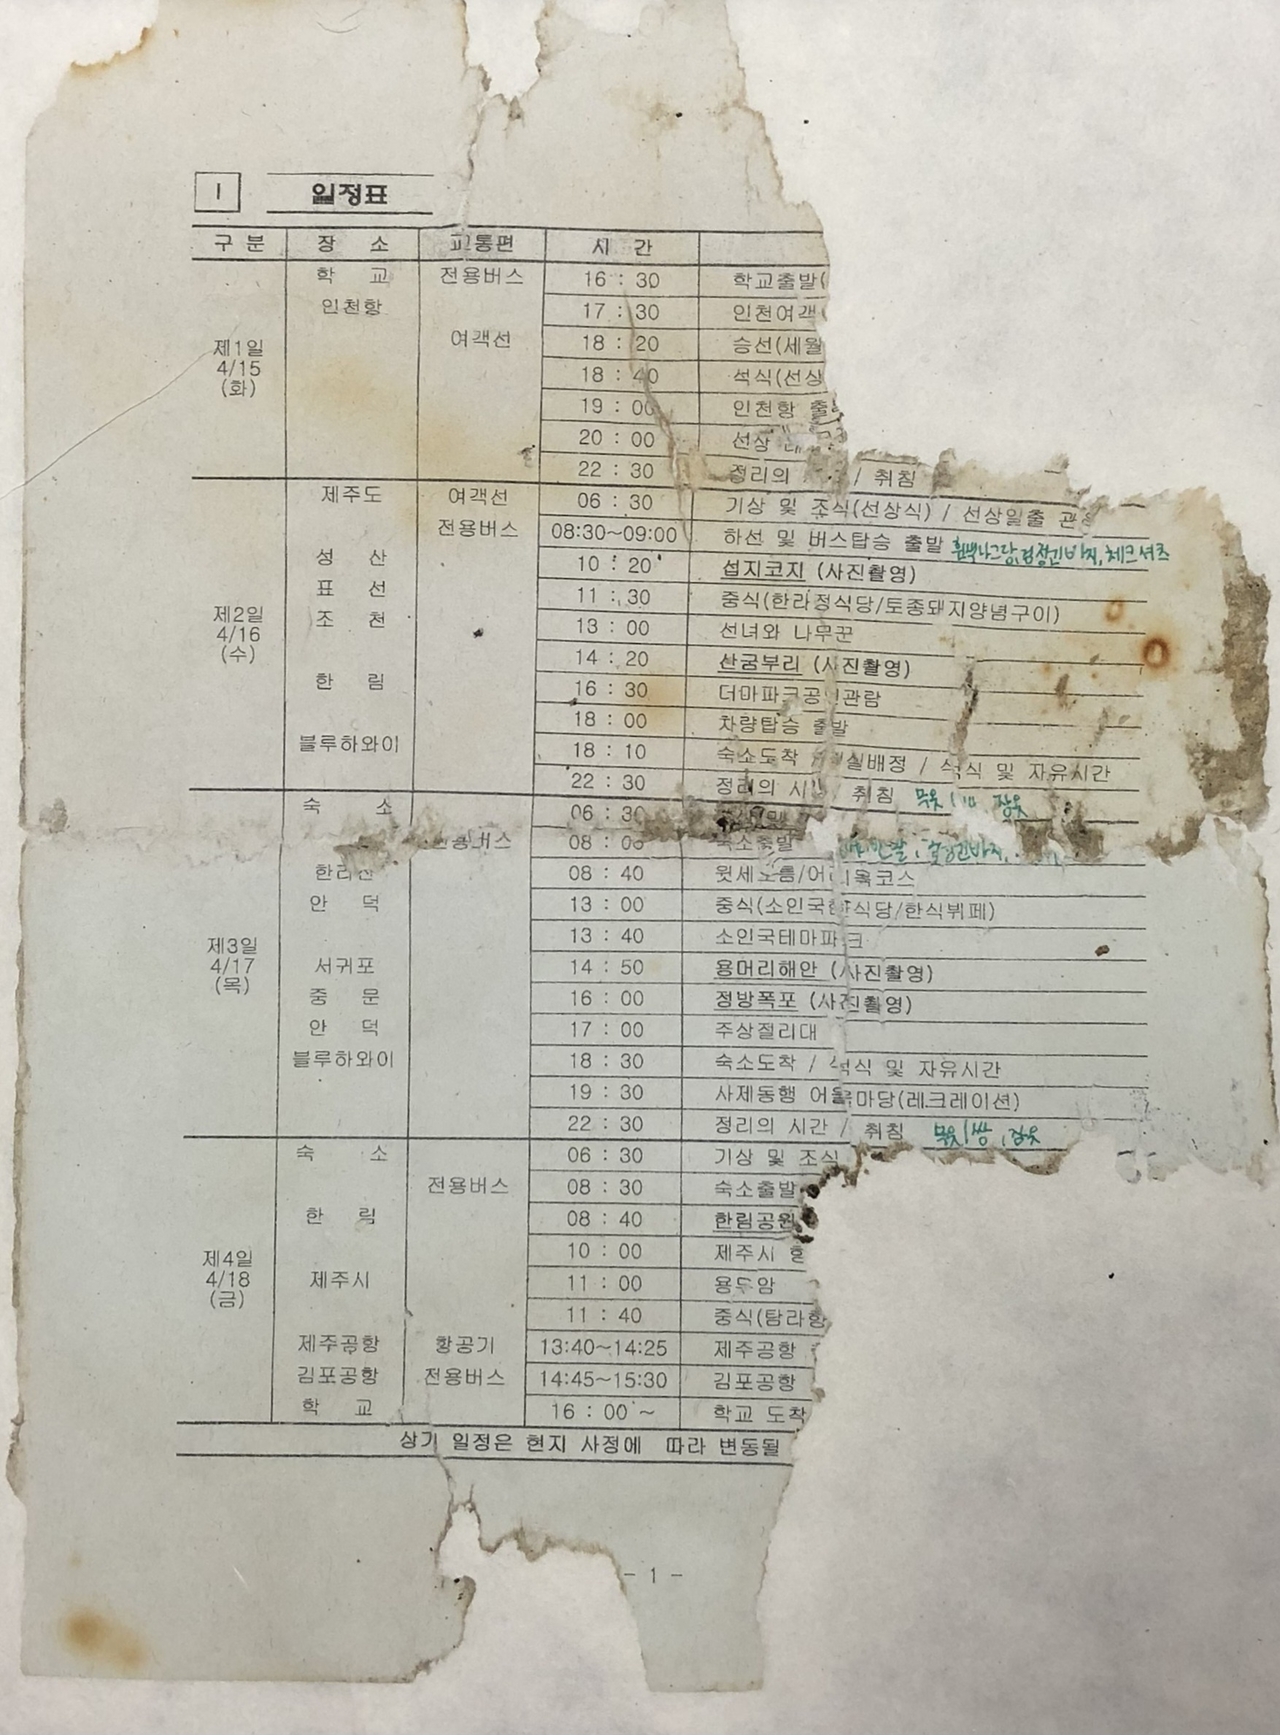 I 일정표
구 분 장 소 교통편 시 간
학 교 전용버스 16 : 30 학교출발(
인천항 17 : 30 인천여객
여객선 18 : 20 승선(세월
제1일 4/15 (화) 18 : 40 석식(선상
19 : 00 인천항
20 : 00 선상
22 : 30 정리의 / 취침
제주도 여객선 06 : 30 기상 및 조식(선상식) / 선상일출
전용버스 08:30~09:00 하선 및 버스탑승 출발 체크셔츠
성 산 10 : 20 섭지코지 (사진촬영)
표 선 11 : 30 중식(한라정식당/토종돼지양념구이)
제2일 4/16 (수) 조 천 13 : 00 선녀와 나무꾼
14 : 20 산굼부리 (사진촬영)
한 림 16 : 30 더마파크공연관람
18 : 00 차량탑승 출발
블루하와이 18 : 10 숙소도착 실배정 / 석식 및 자유시간
22 : 30 정리의 시 / 취침 잠옷
숙 소 06 : 30
전용버스 08 : 00 숙소출발
한라산 08 : 40 윗세오름/어리목코스
안 덕 13 : 00 중식(소인국 식당/한식뷔페)
13 : 40 소인국테마파크
제3일 4/17 (목) 서귀포 14 : 50 용머리해안 (사진촬영)
중 문 16 : 00 정방폭포 (사진촬영)
안 덕 17 : 00 주상절리대
블루하와이 18 : 30 숙소도착 / 석식 및 자유시간
19 : 30 사제동행 어울마당(레크레이션)
22 : 30 정리의 시간 / 취침 잠옷
숙 소 06 : 30 기상 및 조식
전용버스 08 : 30 숙소출발
한 림 08 : 40 한림공원
10 : 00 제주시
제4일 4/18 (금) 제주시 11 : 00 용두암
11 : 40 중식(탐라
제주공항 항공기 13:40~14:25 제주공항
김포공항 전용버스 14:45~15:30 김포공항
학 교 16 : 00 ~ 학교 도착
상기 일정은 현지 사정에 따라 변동될
- 1 -